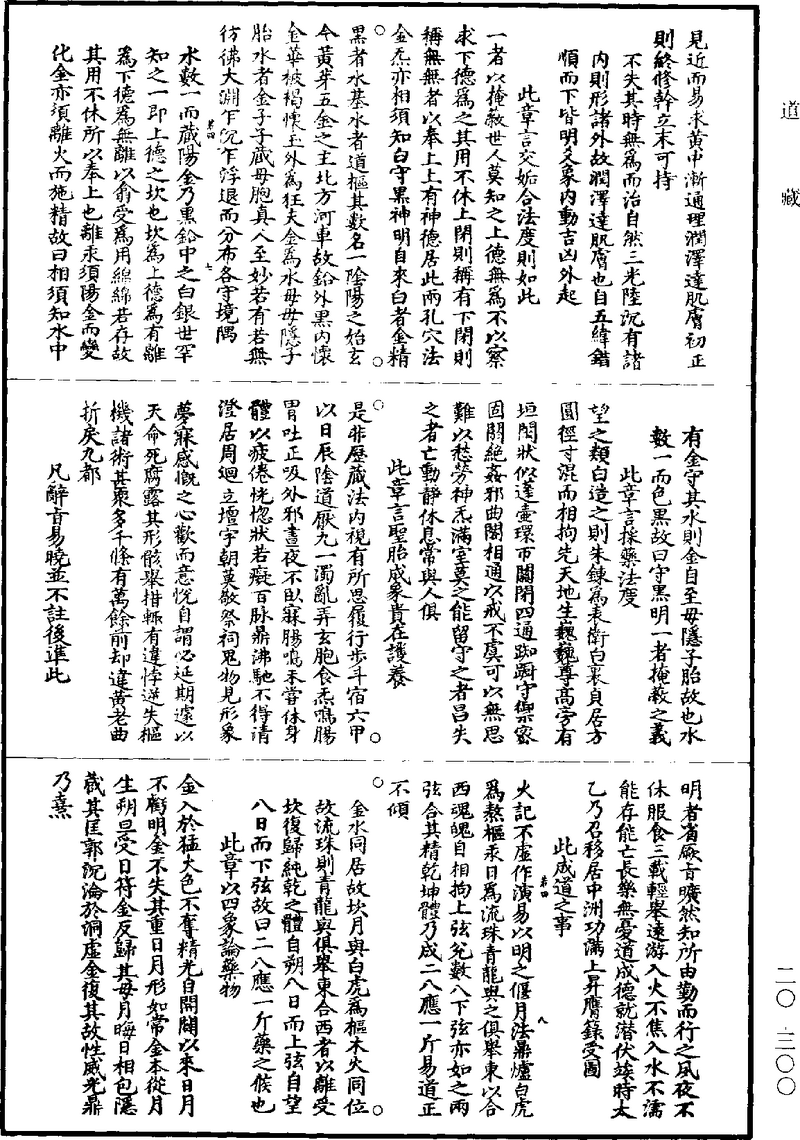 道藏
二〇·三〇〇
見近而易求黃中漸通理潤澤達肌膚初正
則終修幹立末可持
不失其時無為而治自然三光陸沉有諸
內則形諸外故潤澤達肌膚也自五緯錯
順而下皆明爻象內動吉凶外起
此章言交姤合法度則如此
一者以掩蔽世人莫知之上德無為不以察
求下德為之其用不休上閉則稱有下閉則
稱無無者以奉上上有神德居此兩孔穴法
金炁亦相須知白守黑神明自來白者金精
黑者水基水者道樞其數名一陰陽之始玄
含黃芽五金之主北方河車故鉛外黑內懷
金華被褐懷玉外為狂夫金為水母母隱子
胎水者金子子藏母胞真人至妙若有若無
彷彿大淵乍沉乍浮退而分布各守境隅
水數一而藏陽金乃黑鉛中之白銀世罕
知之一即上德之坎也坎為上德為有離
為下德為無離以翕受為用綿綿若存故
其用不休所以奉上也離汞須陽金而變
化金亦須離火而施精故曰相須知水中
有金守其水則金自至母隱子胎故也水
數一而色黑故曰守黑明一者掩蔽之義
此章言採藥法度
望之類白造之則朱鍊為表衛白裏貞居方
圓徑寸混而相拘先天地生巍巍尊高旁有
垣闕狀似蓬壺環帀關閉四通踟躕守禦密
固閼絕姦邪曲閣相通以戒不虞可以無思
難以愁勞神炁滿室莫之能留守之者昌失
之者亡動靜休息常與人俱
此章言聖胎成象貴在護養
是非歷藏法內視有所思履行步斗宿六甲
以日辰陰道厭九一濁亂弄玄胞食炁鳴腸
胃吐正吸外邪晝夜不臥寐腸鳴未嘗休身
體以疲倦恍惚狀若癡百脉鼎沸馳不得清
澄居周迴立壇宇朝莫敬祭祠鬼物見形象
夢寐感慨之心歡而意悅自謂必延期遽以
天命死腐露其形骸舉措輒有違悖逆失樞
機諸術甚衆多千條有萬餘前却違黃老曲
折戾九都
凡辭旨易曉並不註後準此
明者省厥旨曠然知所由勤而行之夙夜不
休服食三載輕舉遠游入火不焦入水不濡
能存能亡長樂無憂道成德就潛伏竢時太
乙乃召移居中洲功滿上昇膺籙受圖
此成道之事
火記不虛作演易以明之偃月法鼎爐白虎
為熬樞汞日為流珠青龍與之俱舉東以合
西魂魄自相拘上弦兌數八下弦亦如之兩
弦合其精乾坤體乃成二八應一斤易道正
不傾
金水同居故坎月與白虎為樞木火同位
故流珠則青龍與俱舉東合西者以離受
坎復歸純乾之體自朔八日而上弦自望
八日而下弦故曰二八應一斤藥之候也
此章以四象論藥物
金入於猛火色不奪精光自開闢以來日月
不虧明金不失其重日月形如常金本從月
生朔旦受日符金反歸其母月晦日相包隱
藏其匡郭沉淪於洞虛金復其故性威光鼎
乃熹